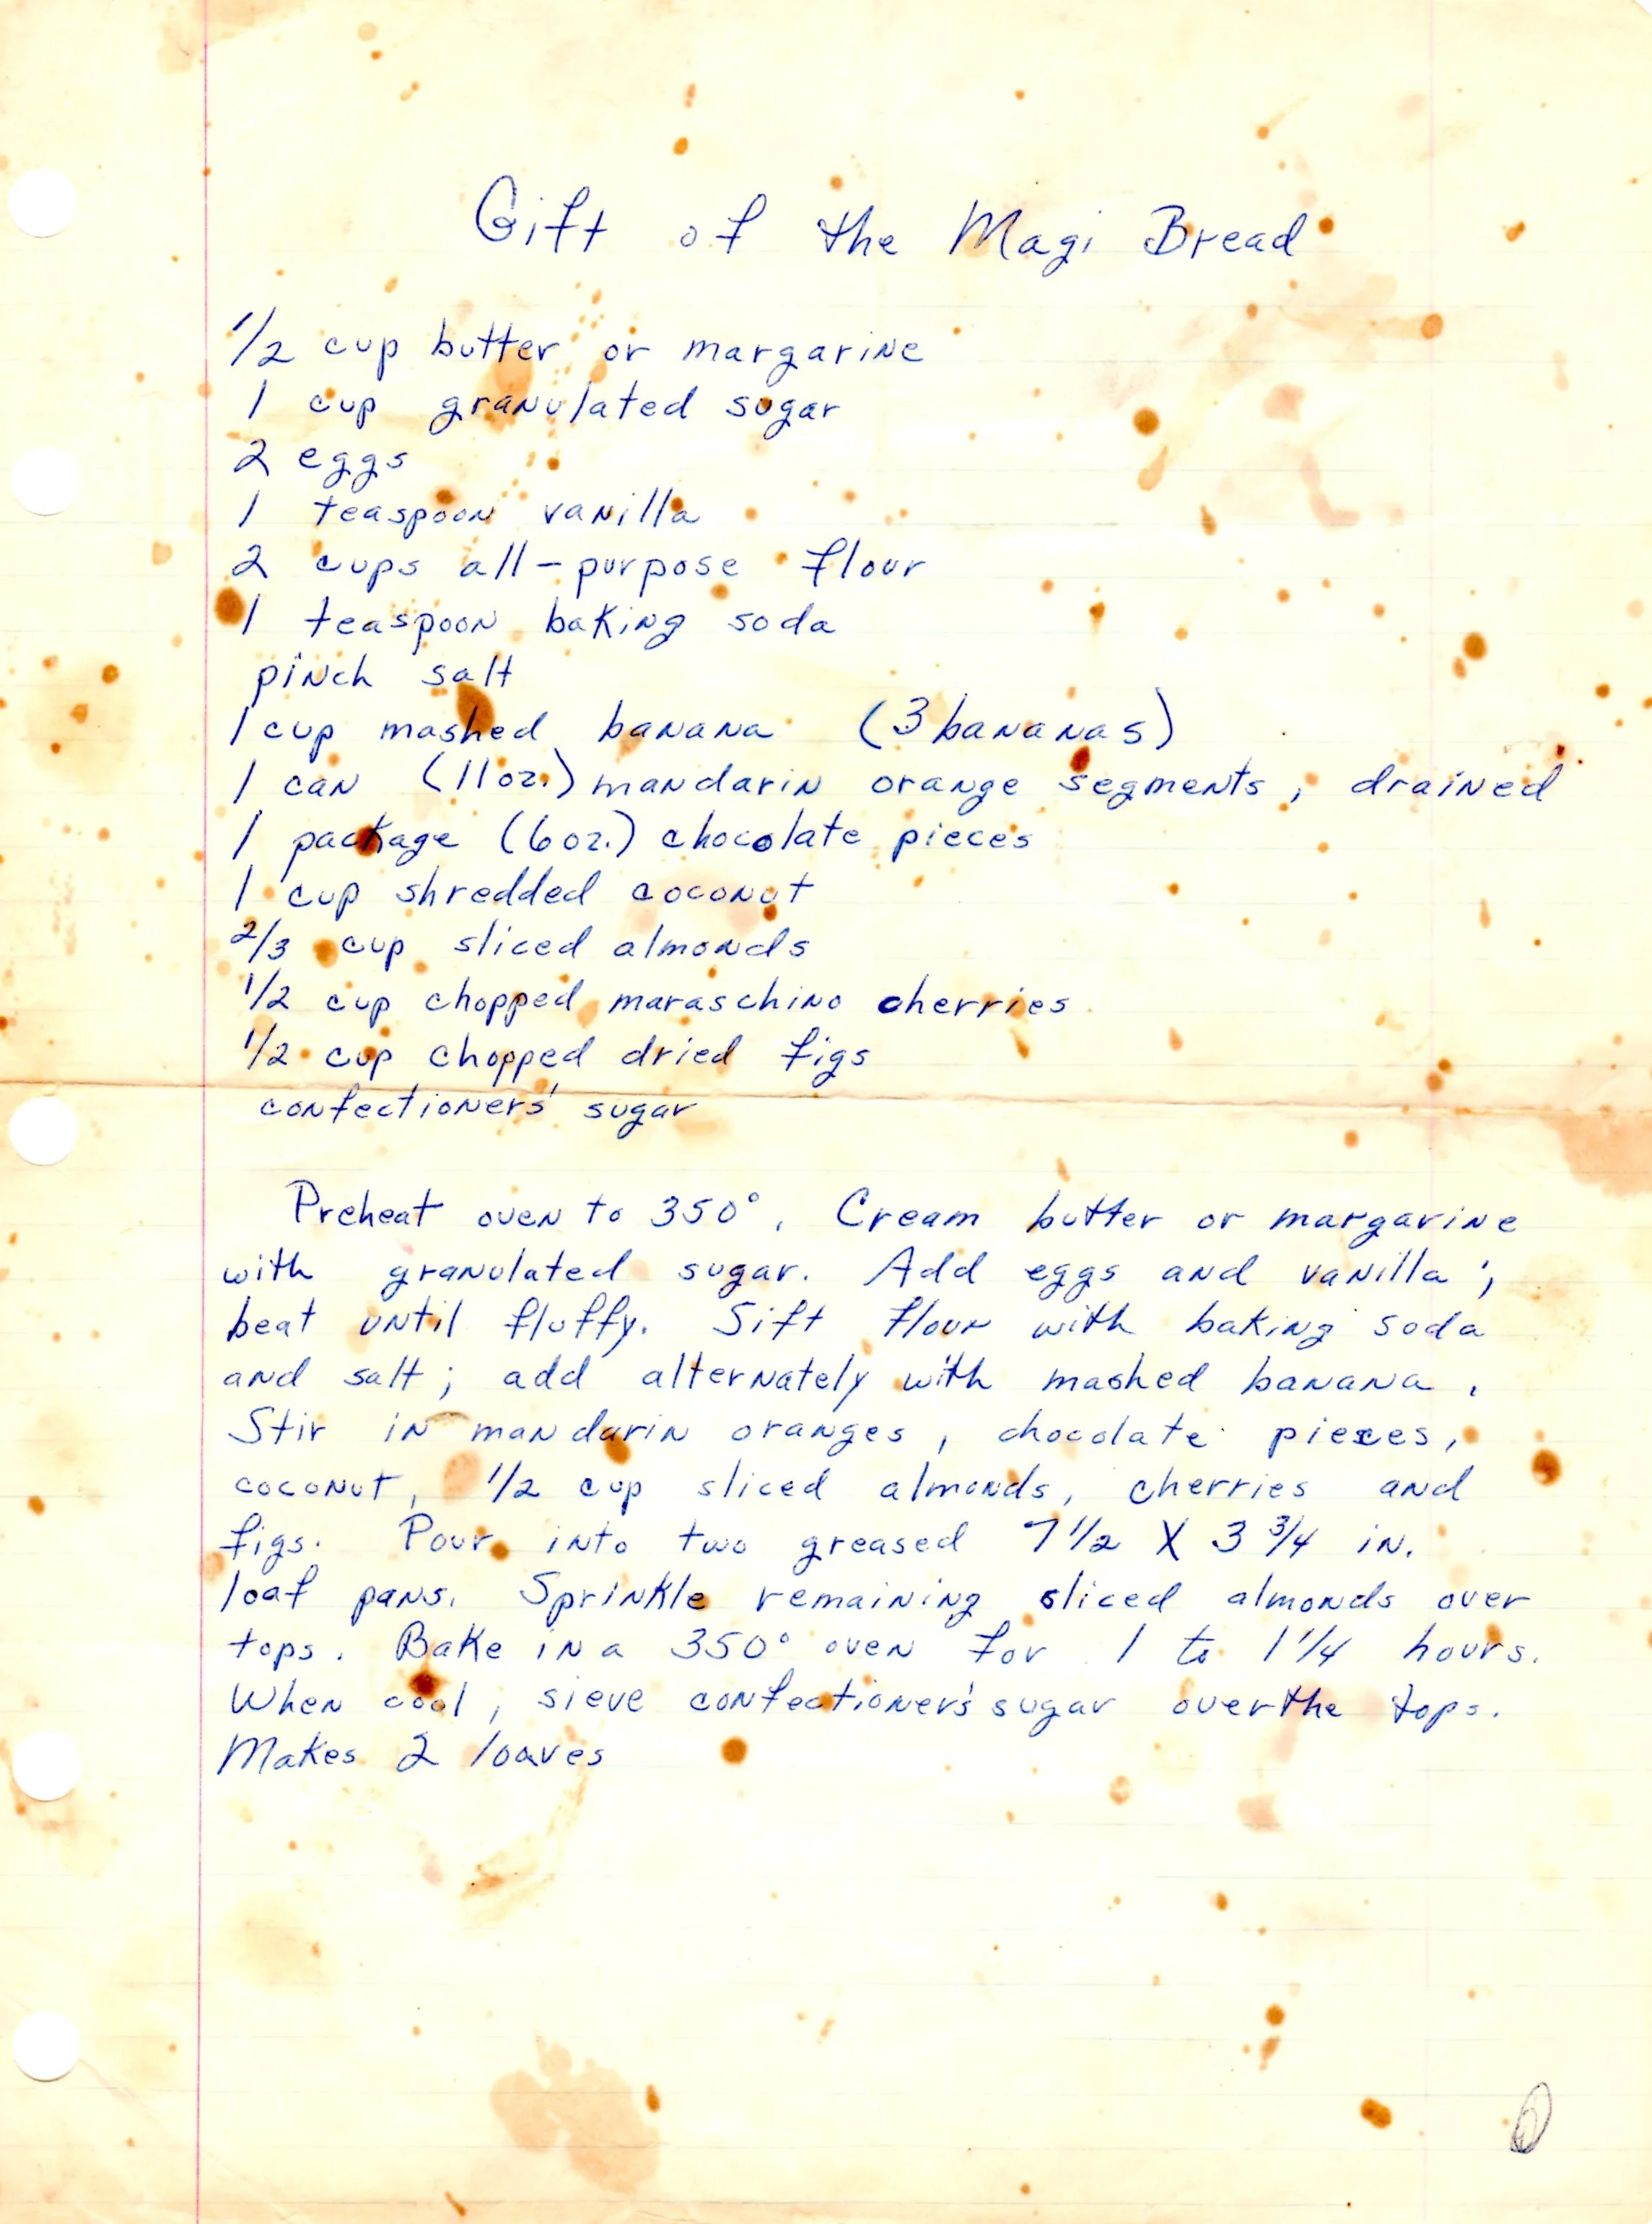 Gift of the Magi Bread
1/2 cup butter or margarine
1 cup granulated sugar
2 eggs
1 teaspoon vanilla
2 cups all-purpose flour
1 teaspoon baking soda
pinch salt
1 cup mashed banana (3 bananas)
1 can (11 oz.) mandarin orange segments, drained
1 package (6 oz.) chocolate pieces
1 cup shredded coconut
2/3 cup sliced almonds
1/2 cup chopped maraschino cherries
1/2 cup chopped dried figs
confectioners' sugar
Preheat oven to 350°. Cream butter or margarine
with granulated sugar. Add eggs and vanilla;
beat until fluffy. Sift flour with baking soda
and salt; add alternately with mashed banana.
Stir in mandarin oranges, chocolate pieces,
coconut, 1/2 cup sliced almonds, cherries and
figs. Pour into two greased 7 1/2 X 3 3/4 in.
loaf pans. Sprinkle remaining sliced almonds over
tops. Bake in a 350° oven for 1 to 1 1/4 hours.
When cool, sieve confectioner's sugar over the tops.
Makes 2 loaves